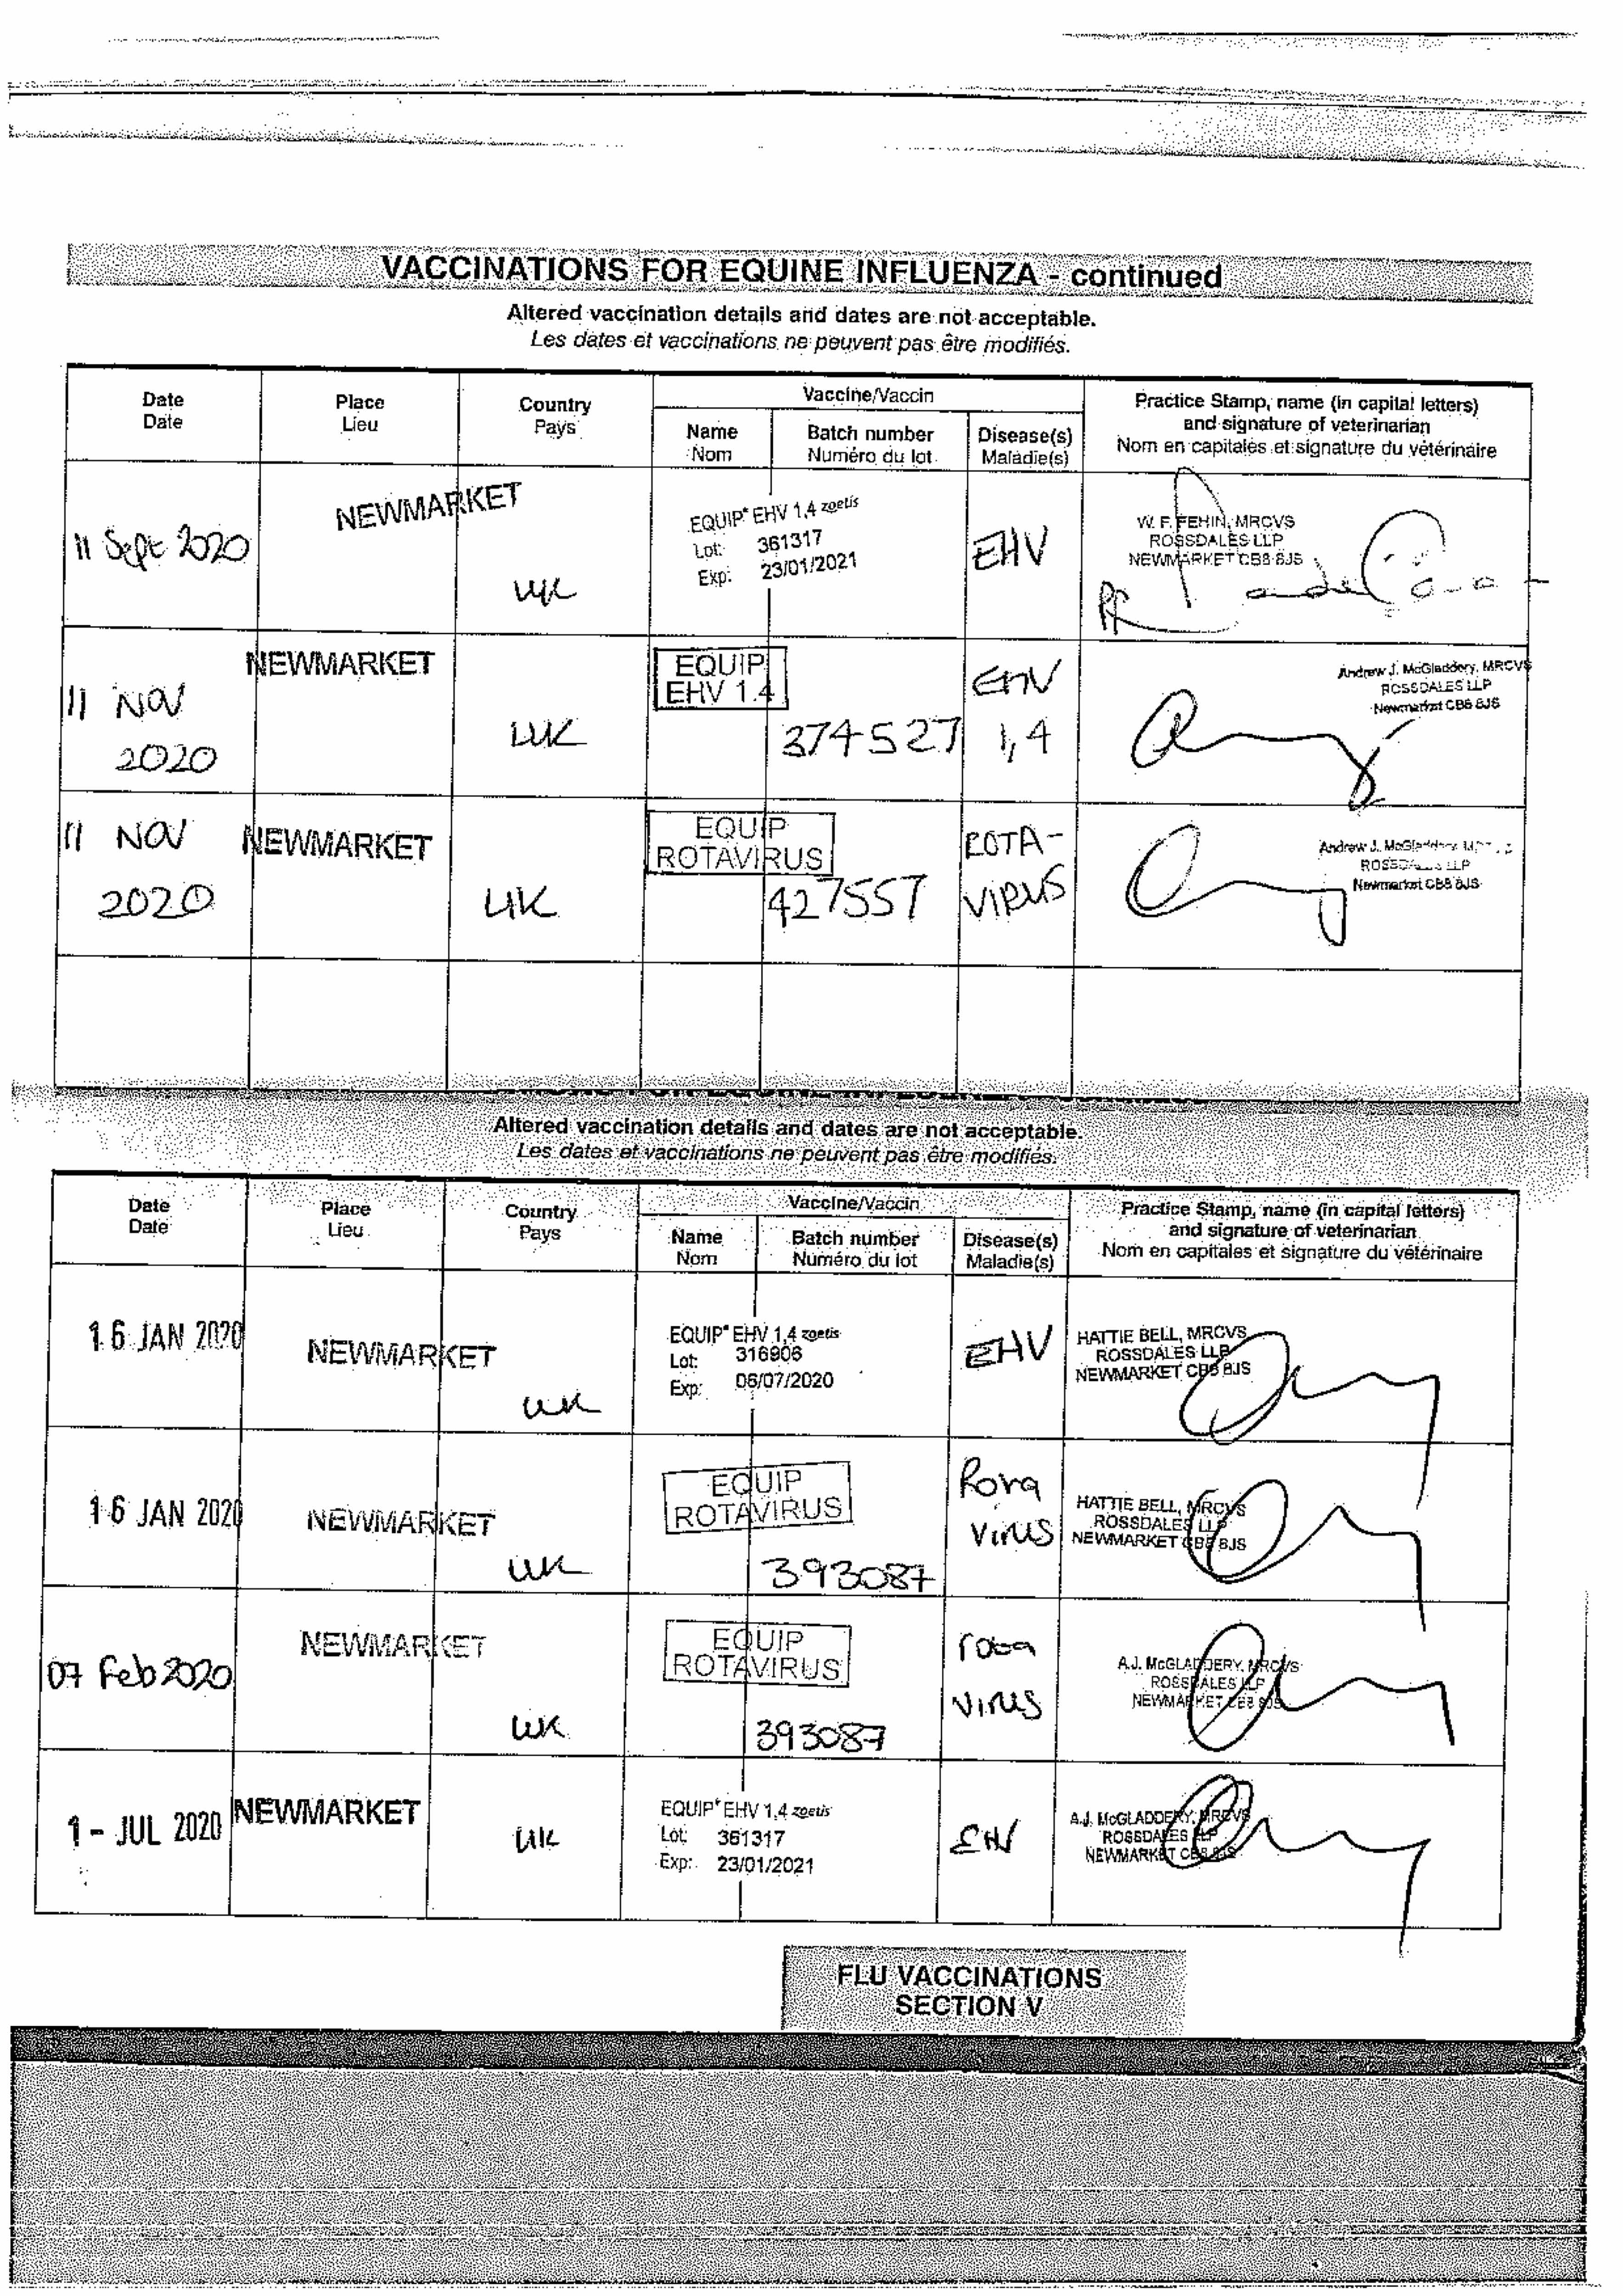 VACCINATIONS FOR EQUINE INFLUENZA - continued
Altered vaccination details and dates are not acceptable.
Les dates et vaccinations ne peuvent pas être modifiés.
Date
Date
Place
Lieu
Country
Pays
Vaccine/Vaccin
Name
Nom
Batch number
Numéro du lot
Disease(s)
Maladie(s)
Practice Stamp, name (in capital letters)
and signature of veterinarian
Nom en capitales et signature du vétérinaire
11 Sept 2020
NEWMARKET
UK
EQUIP* EHV 1,4 zoetis
Lot: 361317
Exp: 23/01/2021
EHV
W. F. FEHIN, MRCVS
ROSSDALES LLP
NEWMARKET CB8 8JS
PP
11 NOV
2020
NEWMARKET
UK
EQUIP
EHV 1.4
374527
EHV
1,4
Andrew J. McGladdery, MRCVS
ROSSDALES LLP
Newmarket CB8 8JS
11 NOV
2020
NEWMARKET
UK
EQUIP
ROTAVIRUS
427557
ROTA-
VIRUS
Andrew J. McGladdery
ROSSDALES LLP
Newmarket CB8 8JS
Altered vaccination details and dates are not acceptable.
Les dates et vaccinations ne peuvent pas être modifiés.
Date
Date
Place
Lieu
Country
Pays
Vaccine/Vaccin
Name
Nom
Batch number
Numéro du lot
Disease(s)
Maladie(s)
Practice Stamp, name (in capital letters)
and signature of veterinarian
Nom en capitales et signature du vétérinaire
16 JAN 2020
NEWMARKET
UK
EQUIP* EHV 1,4 zoetis
Lot: 316906
Exp: 06/07/2020
EHV
HATTIE BELL, MRCVS
ROSSDALES LLP
NEWMARKET CB8 8JS
16 JAN 2020
NEWMARKET
UK
EQUIP
ROTAVIRUS
393087
Rota
Virus
HATTIE BELL, MRCVS
ROSSDALES LLP
NEWMARKET CB8 8JS
07 Feb 2020
NEWMARKET
UK
EQUIP
ROTAVIRUS
393087
rota
virus
A.J. McGLADDERY, MRCVS
ROSSDALES LLP
NEWMARKET CB8 8JS
1 - JUL 2020
NEWMARKET
UK
EQUIP* EHV 1,4 zoetis
Lot: 361317
Exp: 23/01/2021
EHV
A.J. McGLADDERY, MRCVS
ROSSDALES LLP
NEWMARKET CB8 8JS
FLU VACCINATIONS
SECTION V